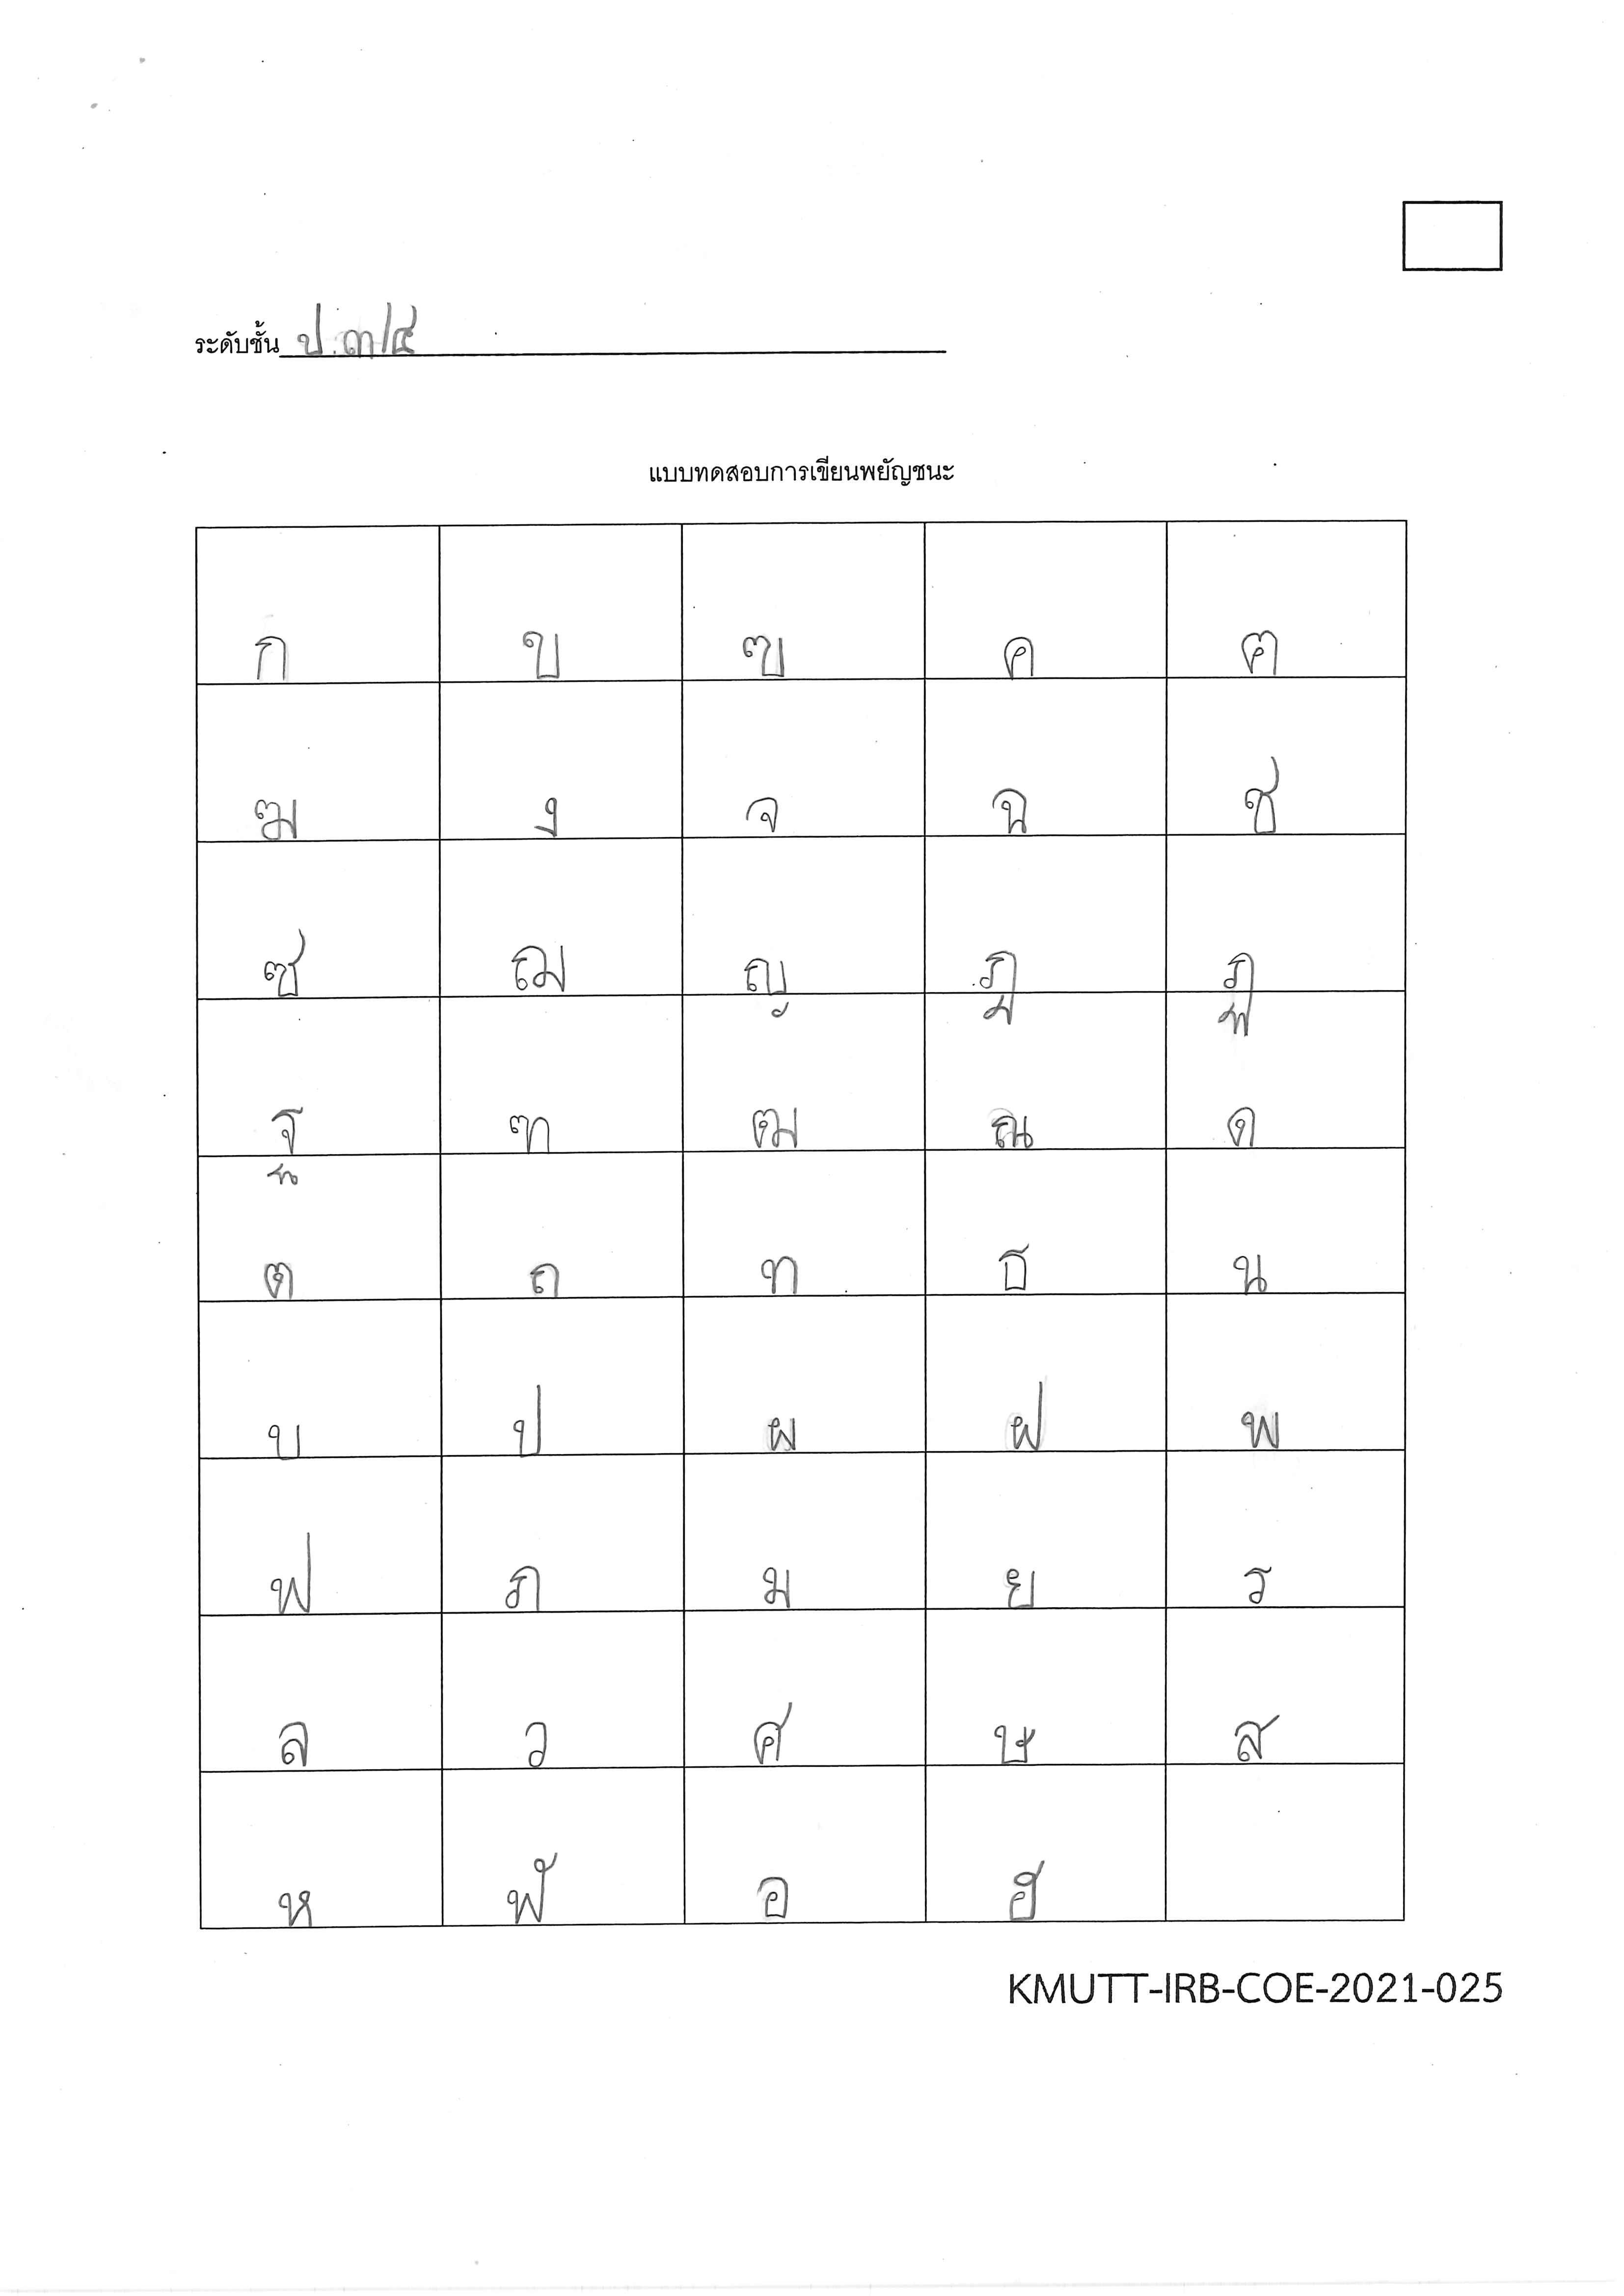 ระดับชั้น ป.๓/๕
แบบทดสอบการเขียนพยัญชนะ
ก ข ฃ ค ฅ
ฆ ง จ ฉ ช
ซ ฌ ญ ฎ ฏ
ฐ ฑ ฒ ณ ด
ต ถ ท ธ น
บ ป ผ ฝ พ
ฟ ภ ม ย ร
ล ว ศ ษ ส
ห ฬ อ ฮ
KMUTT-IRB-COE-2021-025